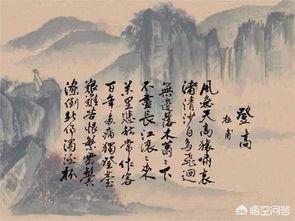 登高
杜甫
風急天高猿嘯哀
渚清沙白鳥飛迴
無邊落木蕭々下
不盡長江滾々來
萬里悲秋常作客
百年多病獨登臺
艱難苦恨繁霜鬢
潦倒新停濁酒杯
悟空问答